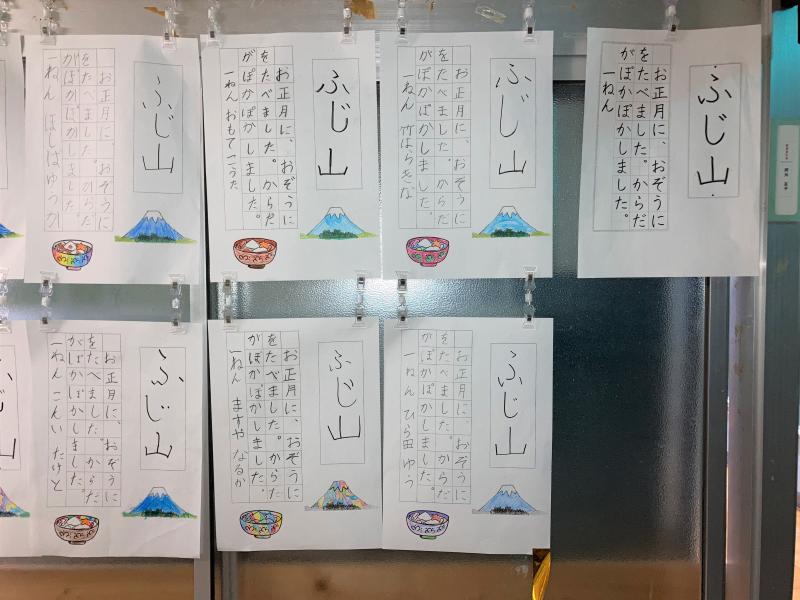 ふじ山
お正月に、おぞうに
をたべました。からだ
がぽかぽかしました。
一ねん
ふじ山
お正月に、おぞうに
をたべました。からだ
がぽかぽかしました。
一ねん 竹はら
ふじ山
お正月に、おぞうに
をたべました。からだ
がぽかぽかしました。
一ねん おもて こうた
ふじ山
お正月に、おぞうに
をたべました。からだ
がぽかぽかしました。
一ねん ほしば ゆうか
ふじ山
お正月に、おぞうに
をたべました。からだ
がぽかぽかしました。
一ねん ひら田 ゆう
ふじ山
お正月に、おぞうに
をたべました。からだ
がぽかぽかしました。
一ねん ますや なるか
ふじ山
お正月に、おぞうに
をたべました。からだ
がぽかぽかしました。
一ねん こんい たけと